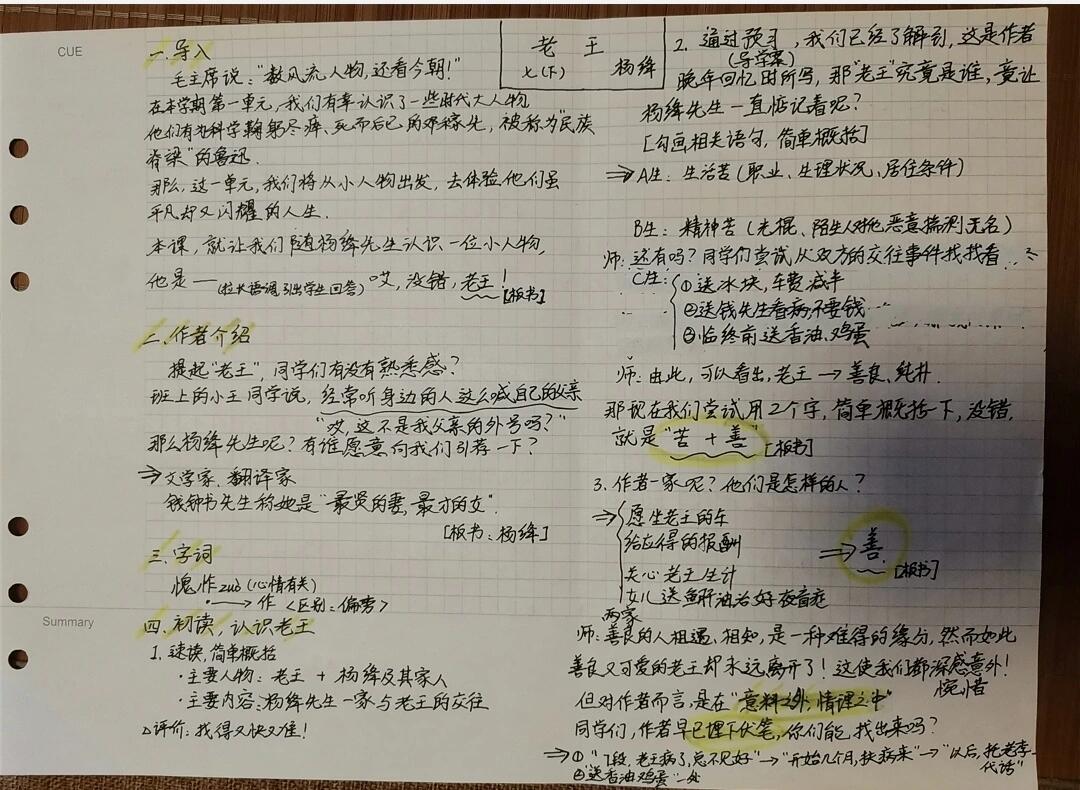 CUE
老 王
七(下) 杨绛
一.导入
毛主席说:“数风流人物,还看今朝!”
在本学期第一单元,我们有幸认识了一些时代大人物,
他们有为科学鞠躬尽瘁,死而后已的邓稼先,被称为“民族
脊梁”的鲁迅.
那么,这一单元,我们将从小人物出发,去体验他们虽
平凡却又闪耀的人生.
本课,就让我们随杨绛先生认识一位小人物,
他是——(拉长语调引出学生回答)哎,没错,老王! [板书]
二.作者介绍
提起“老王”,同学们有没有熟悉感?
班上的小王同学说,经常听身边的人这么喊自己的父亲
“哎,这不是我父亲的外号吗?”
那么杨绛先生呢?有谁愿意向我们引荐一下?
⇒文学家、翻译家
钱钟书先生称她是“最贤的妻,最才的女”.
[板书:杨绛]
三.字词
愧怍zuò(心情有关)
→作<区别:偏旁>
Summary
四.初读,认识老王
1.速读,简单概括
·主要人物:老王 + 杨绛及其家人
·主要内容:杨绛先生一家与老王的交往
△评价:找得又快又准!
2.通过预习,我们已经了解到,这是作者
(导学案)
晚年回忆时所写,那“老王”究竟是谁,竟让
杨绛先生一直惦记着呢?
[勾画相关语句,简单概括]
⇒A生:生活苦(职业、生理状况、居住条件)
B生:精神苦(光棍、陌生人对他恶意揣测无名)
师:还有吗?同学们尝试从双方的交往事件找找看...
C生:①送冰块,车费减半
②送钱先生看病不要钱
③临终前送香油、鸡蛋
师:由此,可以看出,老王→善良、纯朴.
那现在我们尝试用2个字,简单概括一下,没错,
就是“苦+善” [板书]
3.作者一家呢?他们是怎样的人?
⇒愿坐老王的车
给应得的报酬
关心老王生计
女儿送鱼肝油治好夜盲症
⇒善 [板书]
两家
师:善良的人相遇,相知,是一种难得的缘分,然而如此
善良又可爱的老王却永远离开了!这使我们都深感意外!
惋惜
但对作者而言,是在“意料之外,情理之中”
同学们,作者早已埋下伏笔,你们能找出来吗?
⇒①“7段,老王病了,总不见好”→“开始几个月,扶病来”→“以后,托老李
代话”
②“送香油鸡蛋”处